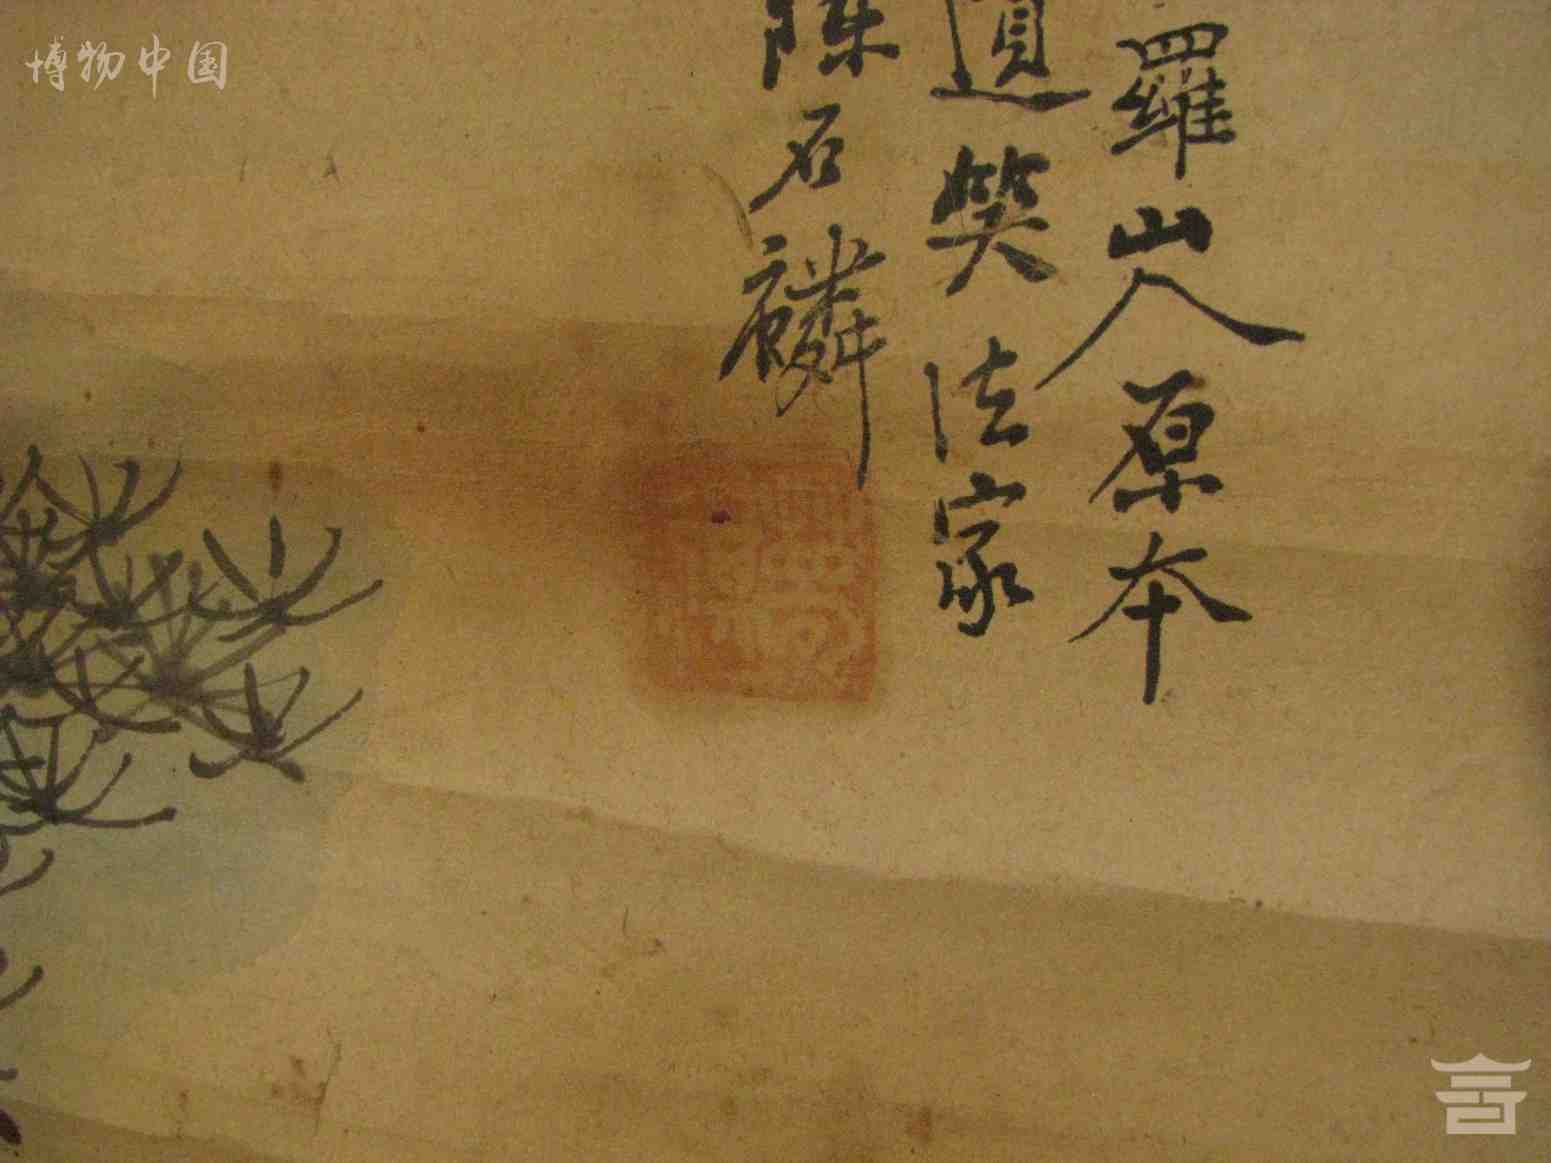 博物中国
羅山人原本
遺笑法家
陳石麟